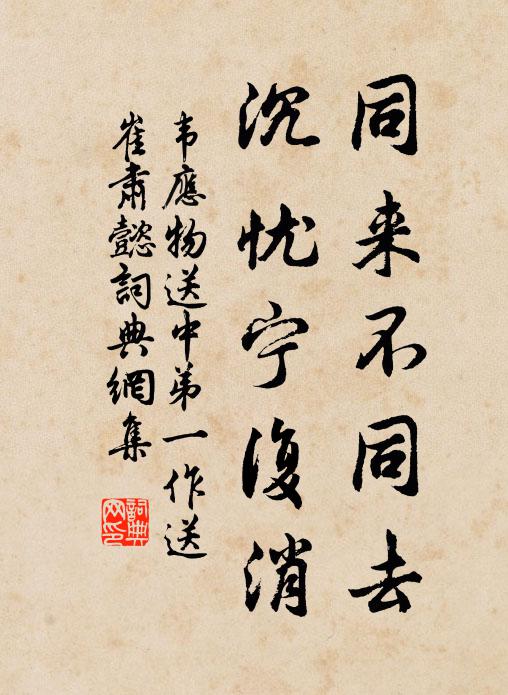 同来不同去
沉忧宁復消
韦應物送中弟一作送
崔肅懿詞典網集
詞典
网印